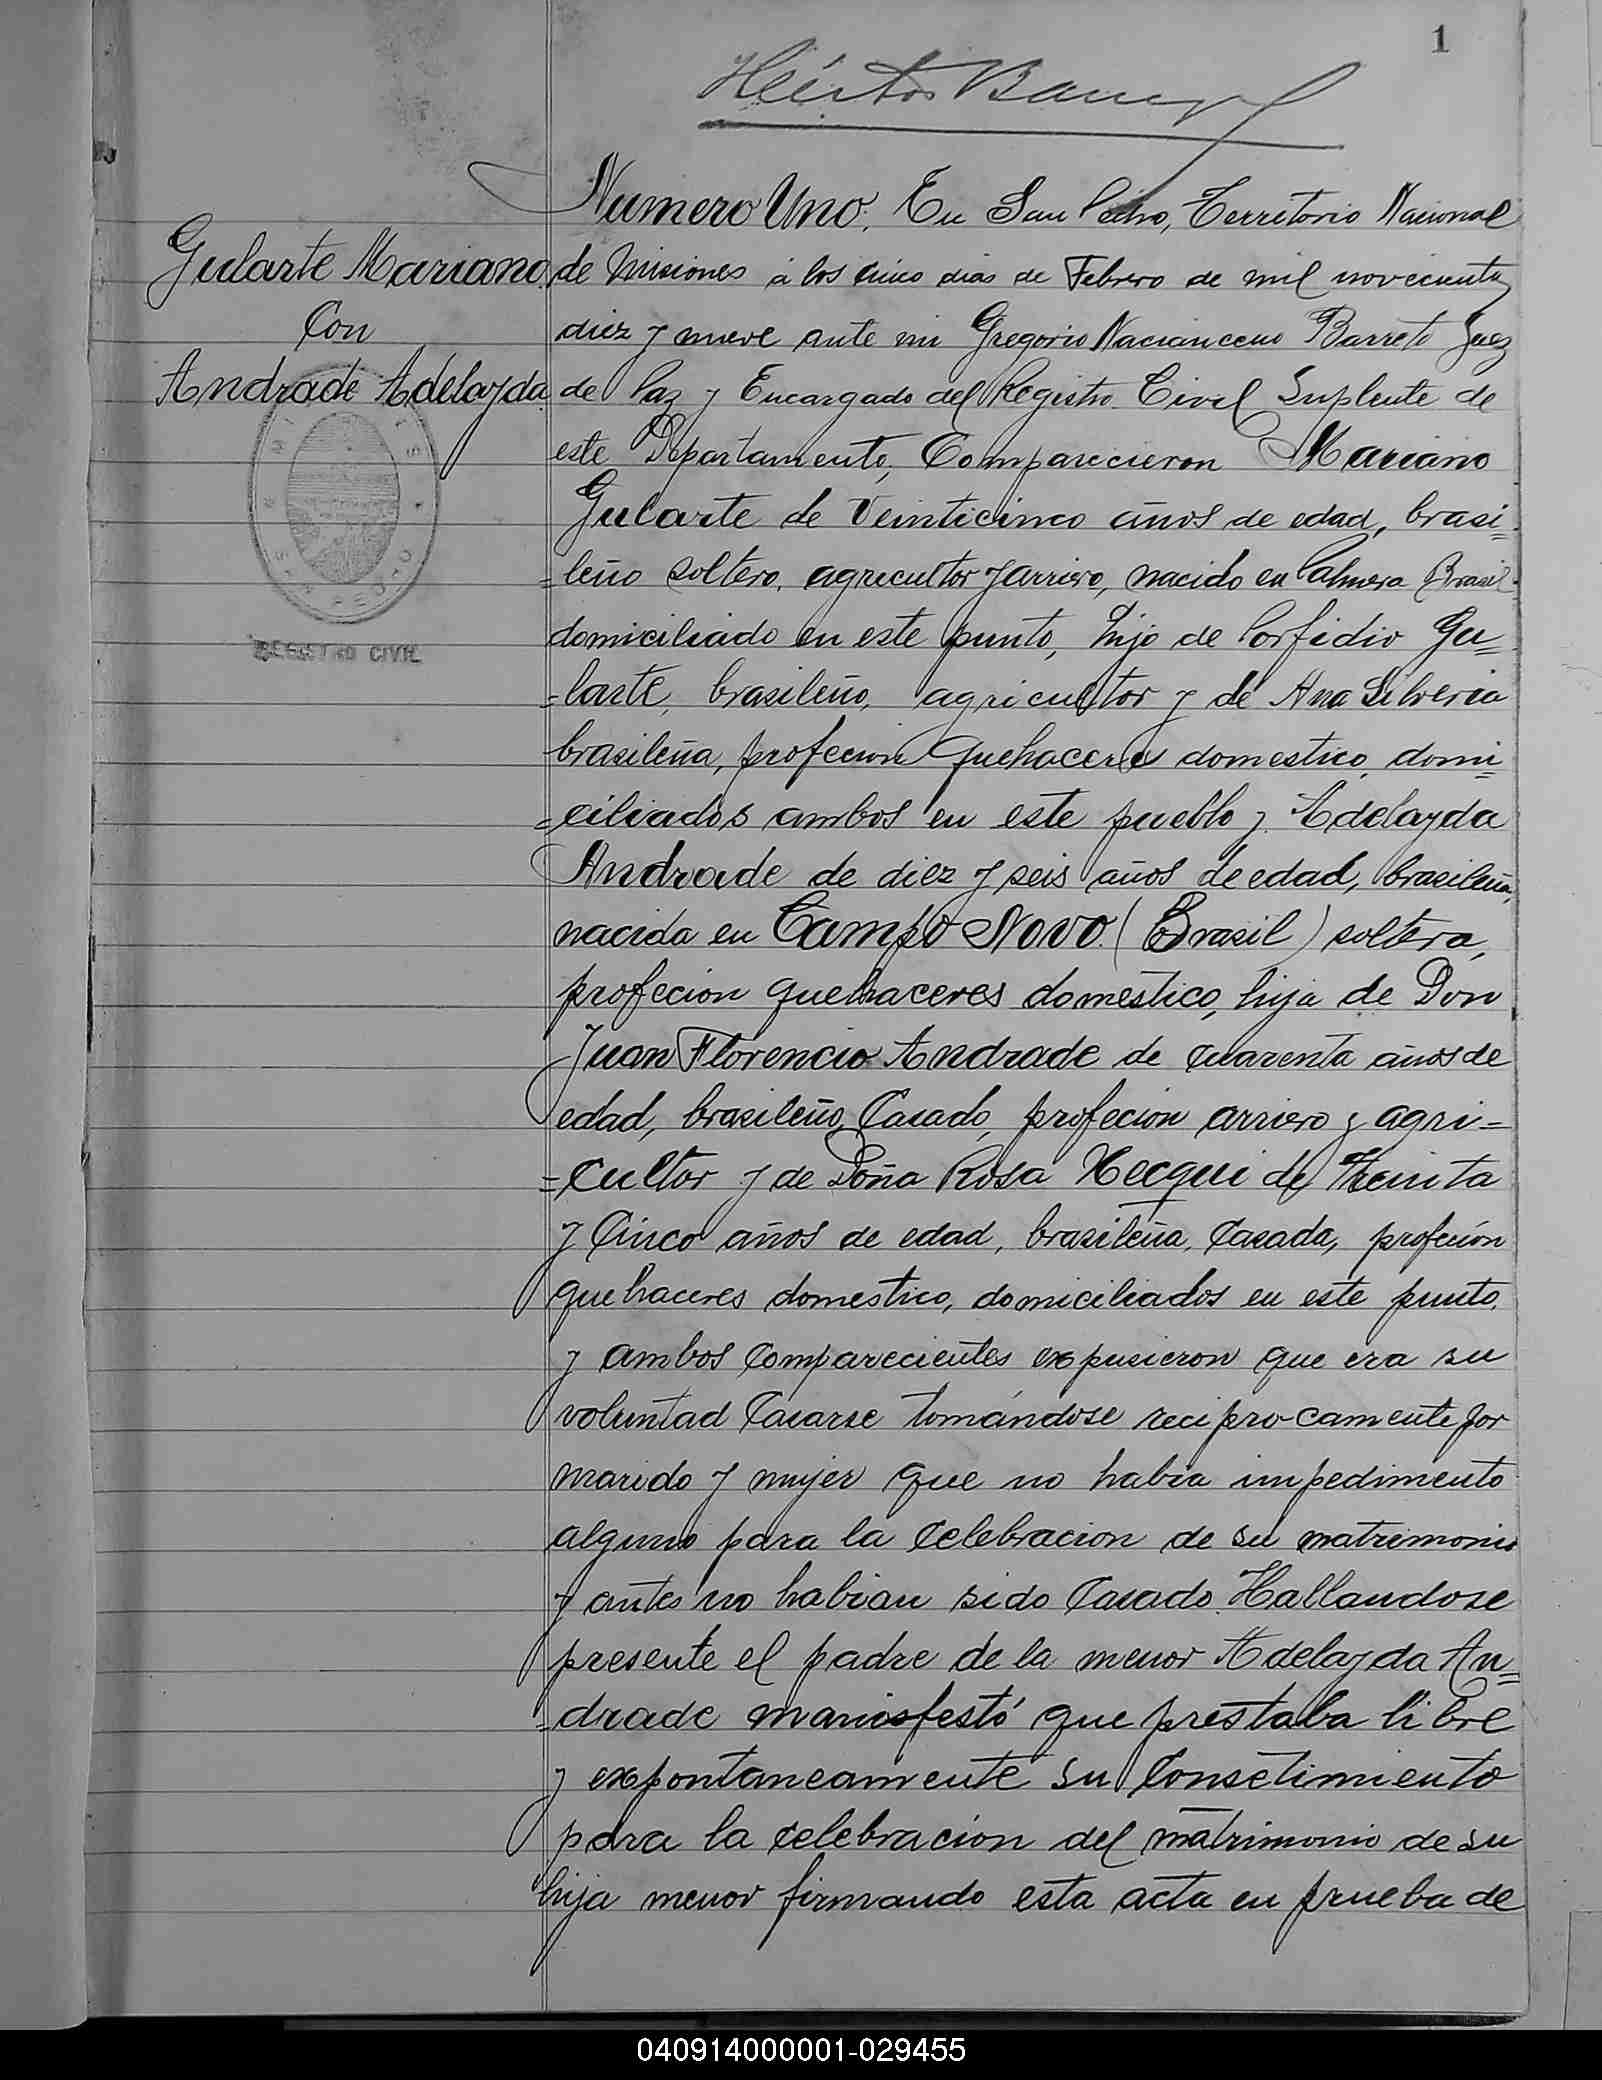 1
Numero Uno. En San Pedro, Territorio Nacional
Gularte Mariano
Con
Andrade Adelayda
de Misiones á los cinco dias de Febrero de mil novecientos
diez y nueve ante mi Gregorio Nacianceno Barreto Juez
de Paz y Encargado del Registro Civil Suplente de
este Departamento, Comparecieron Mariano
Gularte de Veinticinco años de edad, brasi=
=leño soltero, agricultor y arriero, nacido en Palmera Brasil
domiciliado en este punto, hijo de Porfidio Gu=
=larte, brasileño, agricultor y de Ana Silveria
brasileña, profecion quehaceres domestico, domi=
=ciliados ambos en este pueblo y Adelayda
Andrade de diez y seis años de edad, brasileña,
nacida en Campo Novo (Brasil) soltera,
profecion quehaceres domestico, hija de Don
Juan Florencio Andrade de cuarenta años de
edad, brasileño, Casado, profecion arriero y agri=
=cultor y de Doña Rosa de Treinta
y Cinco años de edad, brasileña, Casada, profecion
quehaceres domestico, domiciliados en este punto,
y ambos comparecientes expusieron que era su
voluntad Casarse tomándose reciprocamente por
marido y mujer que no habia impedimento
alguno para la celebracion de su matrimonio
y antes no habian sido Casado. Hallandose
presente el padre de la menor Adelayda An=
=drade manisfestó que prestaba libre
y expontaneamente su Consetimiento
para la celebracion del matrimonio de su
hija menor firmando esta acta en prueba de
MISIONES
SAN PEDRO
REGISTRO CIVIL
040914000001-029455